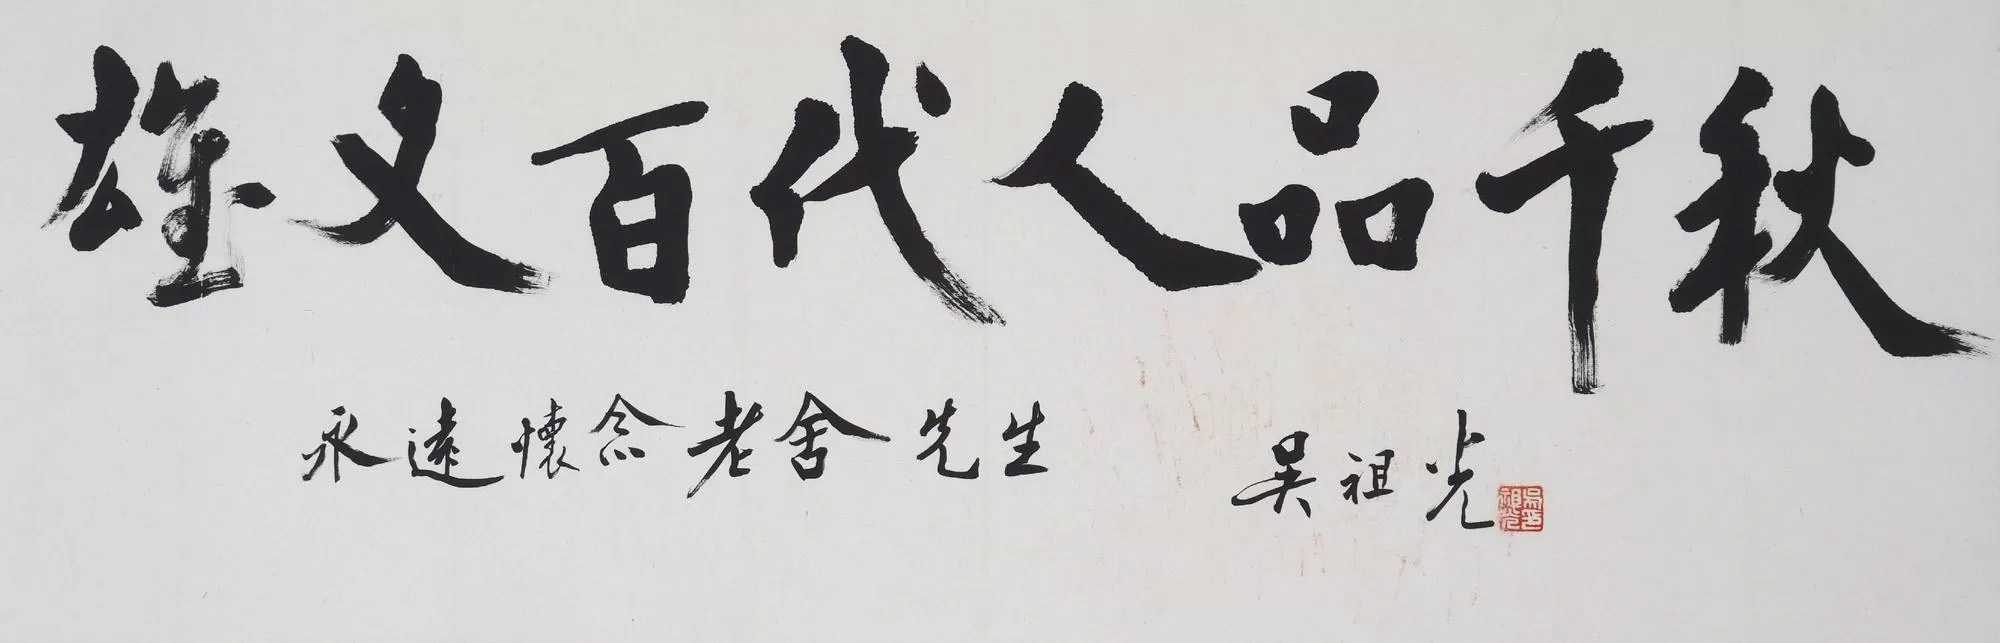 雄文百代人品千秋
永遠懷念老舍先生
吳祖光
吳祖光印